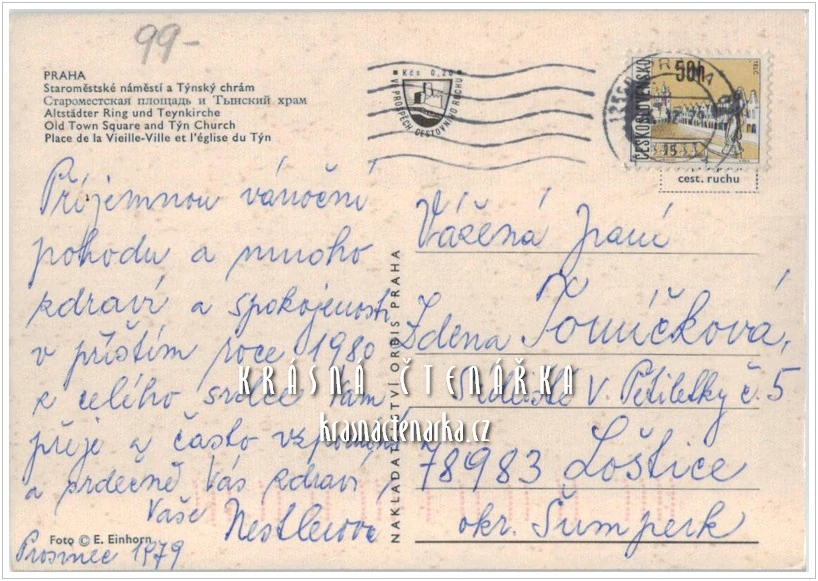 99-
PRAHA
Staroměstské náměstí a Týnský chrám
Староместская площадь и Тынский храм
Altstädter Ring und Teynkirche
Old Town Square and Týn Church
Place de la Vieille-Ville et l'église du Týn
Kčs 0,20
V PROSPĚCH CESTOVNÍHO RUCHU
ČESKOSLOVENSKO
50h
cest. ruchu
Příjemnou vánoční
pohodu a mnoho
zdraví a spokojenosti
v příštím roce 1980
z celého srdce Vám
přeje a často
a srdečně Vás zdraví
Vaše Nestlerová
Prosinec 1979
Foto © E. Einhorn
NAKLADATELSTVÍ ORBIS PRAHA
Vážená paní
Zdena Tomíčková,
V. Pětiletky č. 5
78983 Loštice
okr. Šumperk
KRÁSNÁ ČTENÁŘKA
krasnactenarka.cz